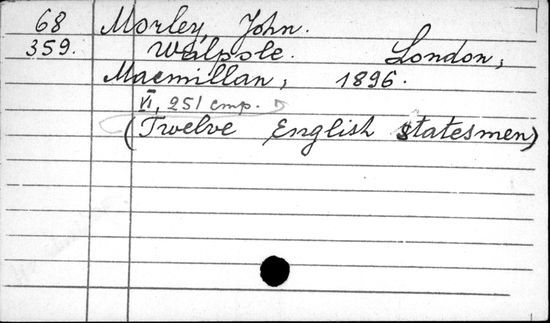 68 Morley, John.
359. Walpole. London,
Macmillan, 1896.
VI, 251 стр.
(Twelve English statesmen)